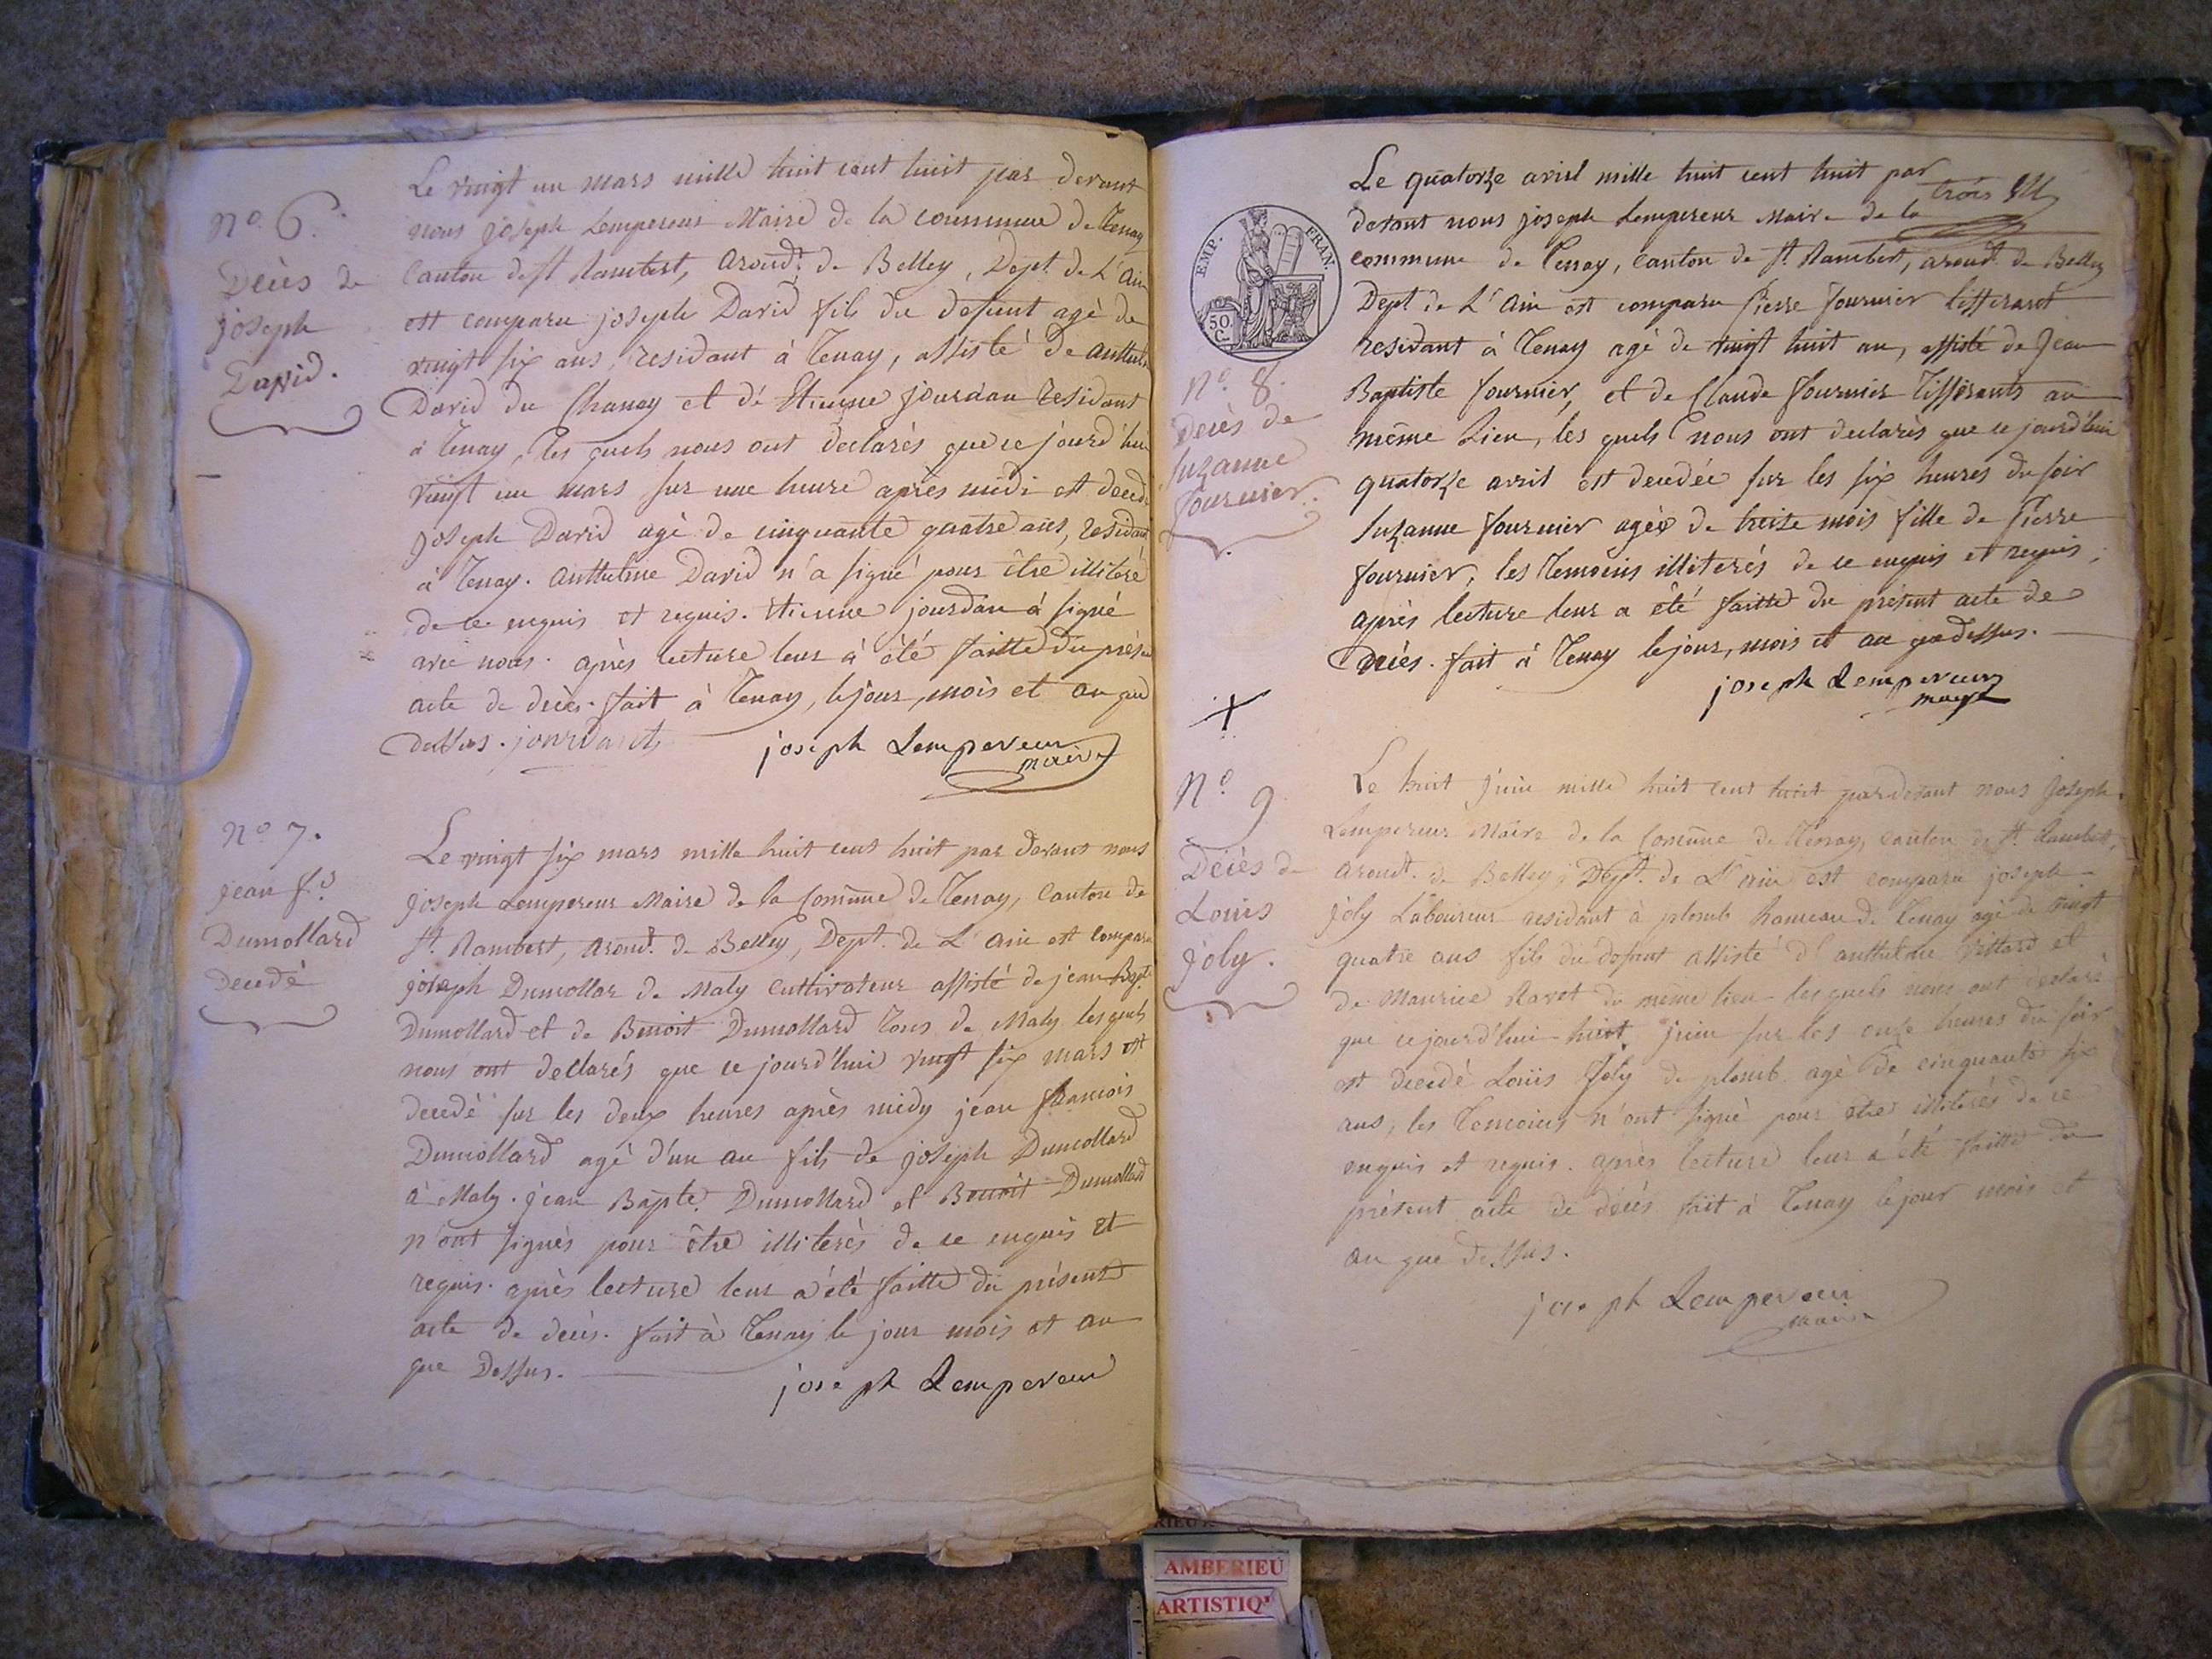 N.o 6.
Décès de
joseph
David.
Le vingt un mars mille huit cent huit par devant
nous joseph Lempereur Maire de la commune de Tenay
Canton de St Rambert, arond.t de Belley, Dept. de L'Ain
est comparu joseph David fils du défunt agé de
vingt six ans, residant à Tenay, assisté de anthelme
David du Chanay et dé Etienne jourdan residant
à Tenay, les quels nous ont declarés que ce jourd'hui
vingt un mars sur une heure après midi est décédé
joseph David agé de cinquante quatre ans, residant
à Tenay. anthelme David n'a signé pour être illiteré
de ce enquis et requis. Etienne jourdan à signé
avec nous. après lecture leur à été faitte du présent
acte de décès. fait à Tenay, le jour, mois et an que
dessus. jourdant
joseph Lempereur
maire
N.o 7.
jean f.s
Dumollard
decedé
Le vingt six mars mille huit cent huit par devant nous
joseph Lempereur Maire de la Comune de Tenay, Canton de
St. Rambert, arond.t de Belley, Dept. de L'Ain est comparu
joseph Dumollar de Maly cultivateur assisté de jean Bapt.
Dumollard et de Benoit Dumollard tous de Maly les quels
nous ont declarés que ce jourd'hui vingt six mars est
decedé sur les deux heures après midy jean francois
Dumollard agé d'un an fils de joseph Dumollard
à Maly. jean Bapte. Dumollard et Benoit Dumollard
n'ont signés pour être illiterés de ce enquis et
requis. après lecture leur a été faitte du présent
acte de décès. fait à Tenay le jour mois et an
que dessus.
joseph Lempereur
EMP. FRAN.
50 C.
trois
N.o 8.
Décès de
Suzanne
fournier.
Le quatorze avril mille huit cent huit par
devant nous joseph Lempereur Maire de la
commune de Tenay, canton de St. Rambert, arond.t de Belley
Dept de L'Ain est comparu Pierre fournier tisserant
residant à Tenay agé de vingt huit an, assisté de Jean
Baptiste fournier, et de Claude fournier tisserants au
même Lieu, les quels nous ont declarés que ce jourd'hui
quatorze avril est decedée sur les six heures du soir
Suzanne fournier agée de treize mois fille de Pierre
fournier, les temoins illiterés de ce enquis et requis,
après lecture leur a été faitte du présent acte de
décès. fait à Tenay le jour, mois et an que dessus.
joseph Lempereur
maire
N.o 9
Décès de
Louis
joly.
Le huit juin mille huit cent huit pardevant nous joseph
Lempereur Maire de la Comune de Tenay, canton de St. Rambert,
arond.t de Belley, Dept. de L'ain est comparu joseph
joly Laboureur residant à plomb hameau de Tenay agé de vingt
quatre ans fils du defunt assisté d'anthelme Villard et
de Maurice Ravet du même lieu les quels nous ont declaré
que ce jourd'hui huit juin sur les onze heures du soir
est decedé Louis Joly de plomb agé de cinquante six
ans, les temoins n'ont signé pour etre illiterés de ce
enquis et requis. après lecture leur a été faitte du
présent acte de décès fait à Tenay le jour mois et
an que dessus.
joseph Lempereur
maire
AMBERIEU
ARTISTIQ